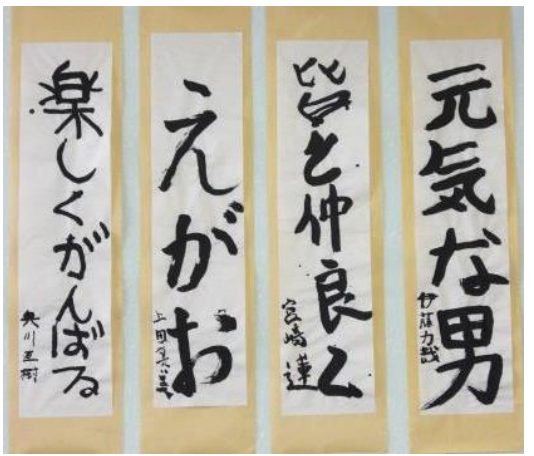 元気な男
伊藤力哉
皆と仲良く
宮崎蓮
えがお
楽しくがんばる